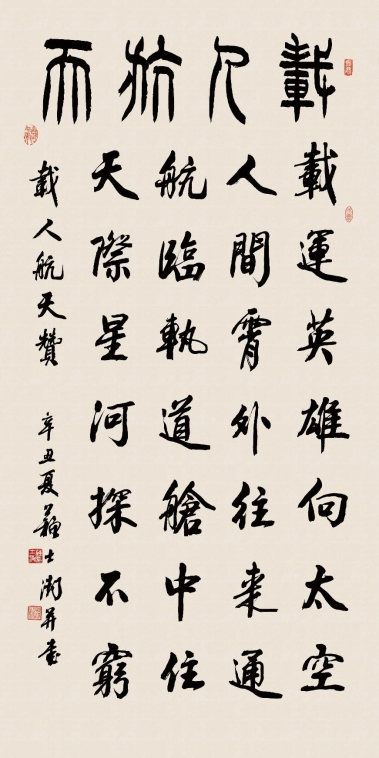 載人航天
載運英雄向太空
人間霄外往來通
航臨軌道艙中住
天際星河探不窮
載人航天贊
辛丑夏蘇士澍并書